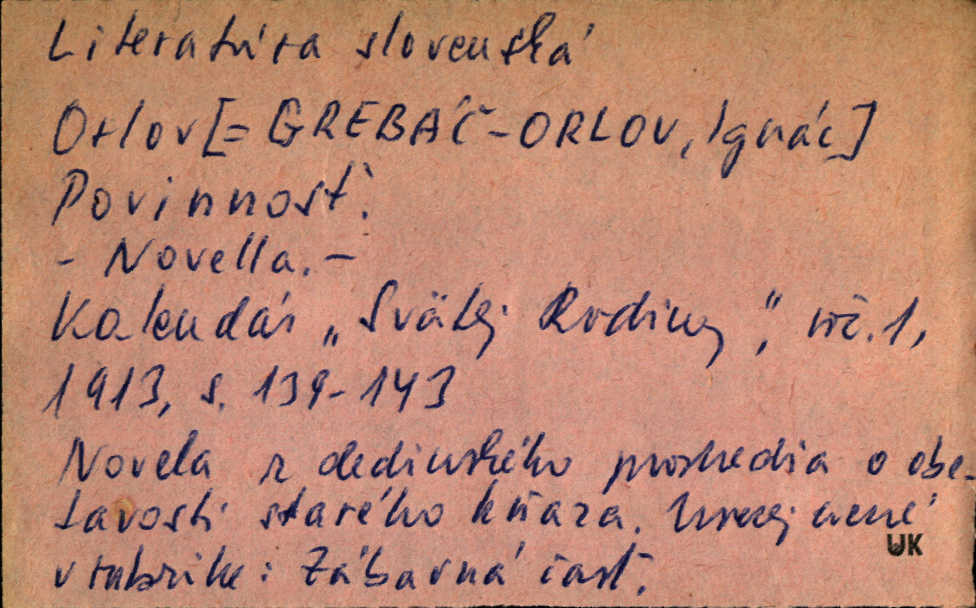 Literatúra slovenská
Orlov [= GREBÁČ-ORLOV, Ignác]
Povinnosť.
- Novella. -
Kalendár „Svätej Rodiny", roč. 1,
1913, s. 139-143
Novela z dedinského prostredia o obe-
tavosti starého kňaza. Uverejnené
v rubrike: Zábavná časť.
UK